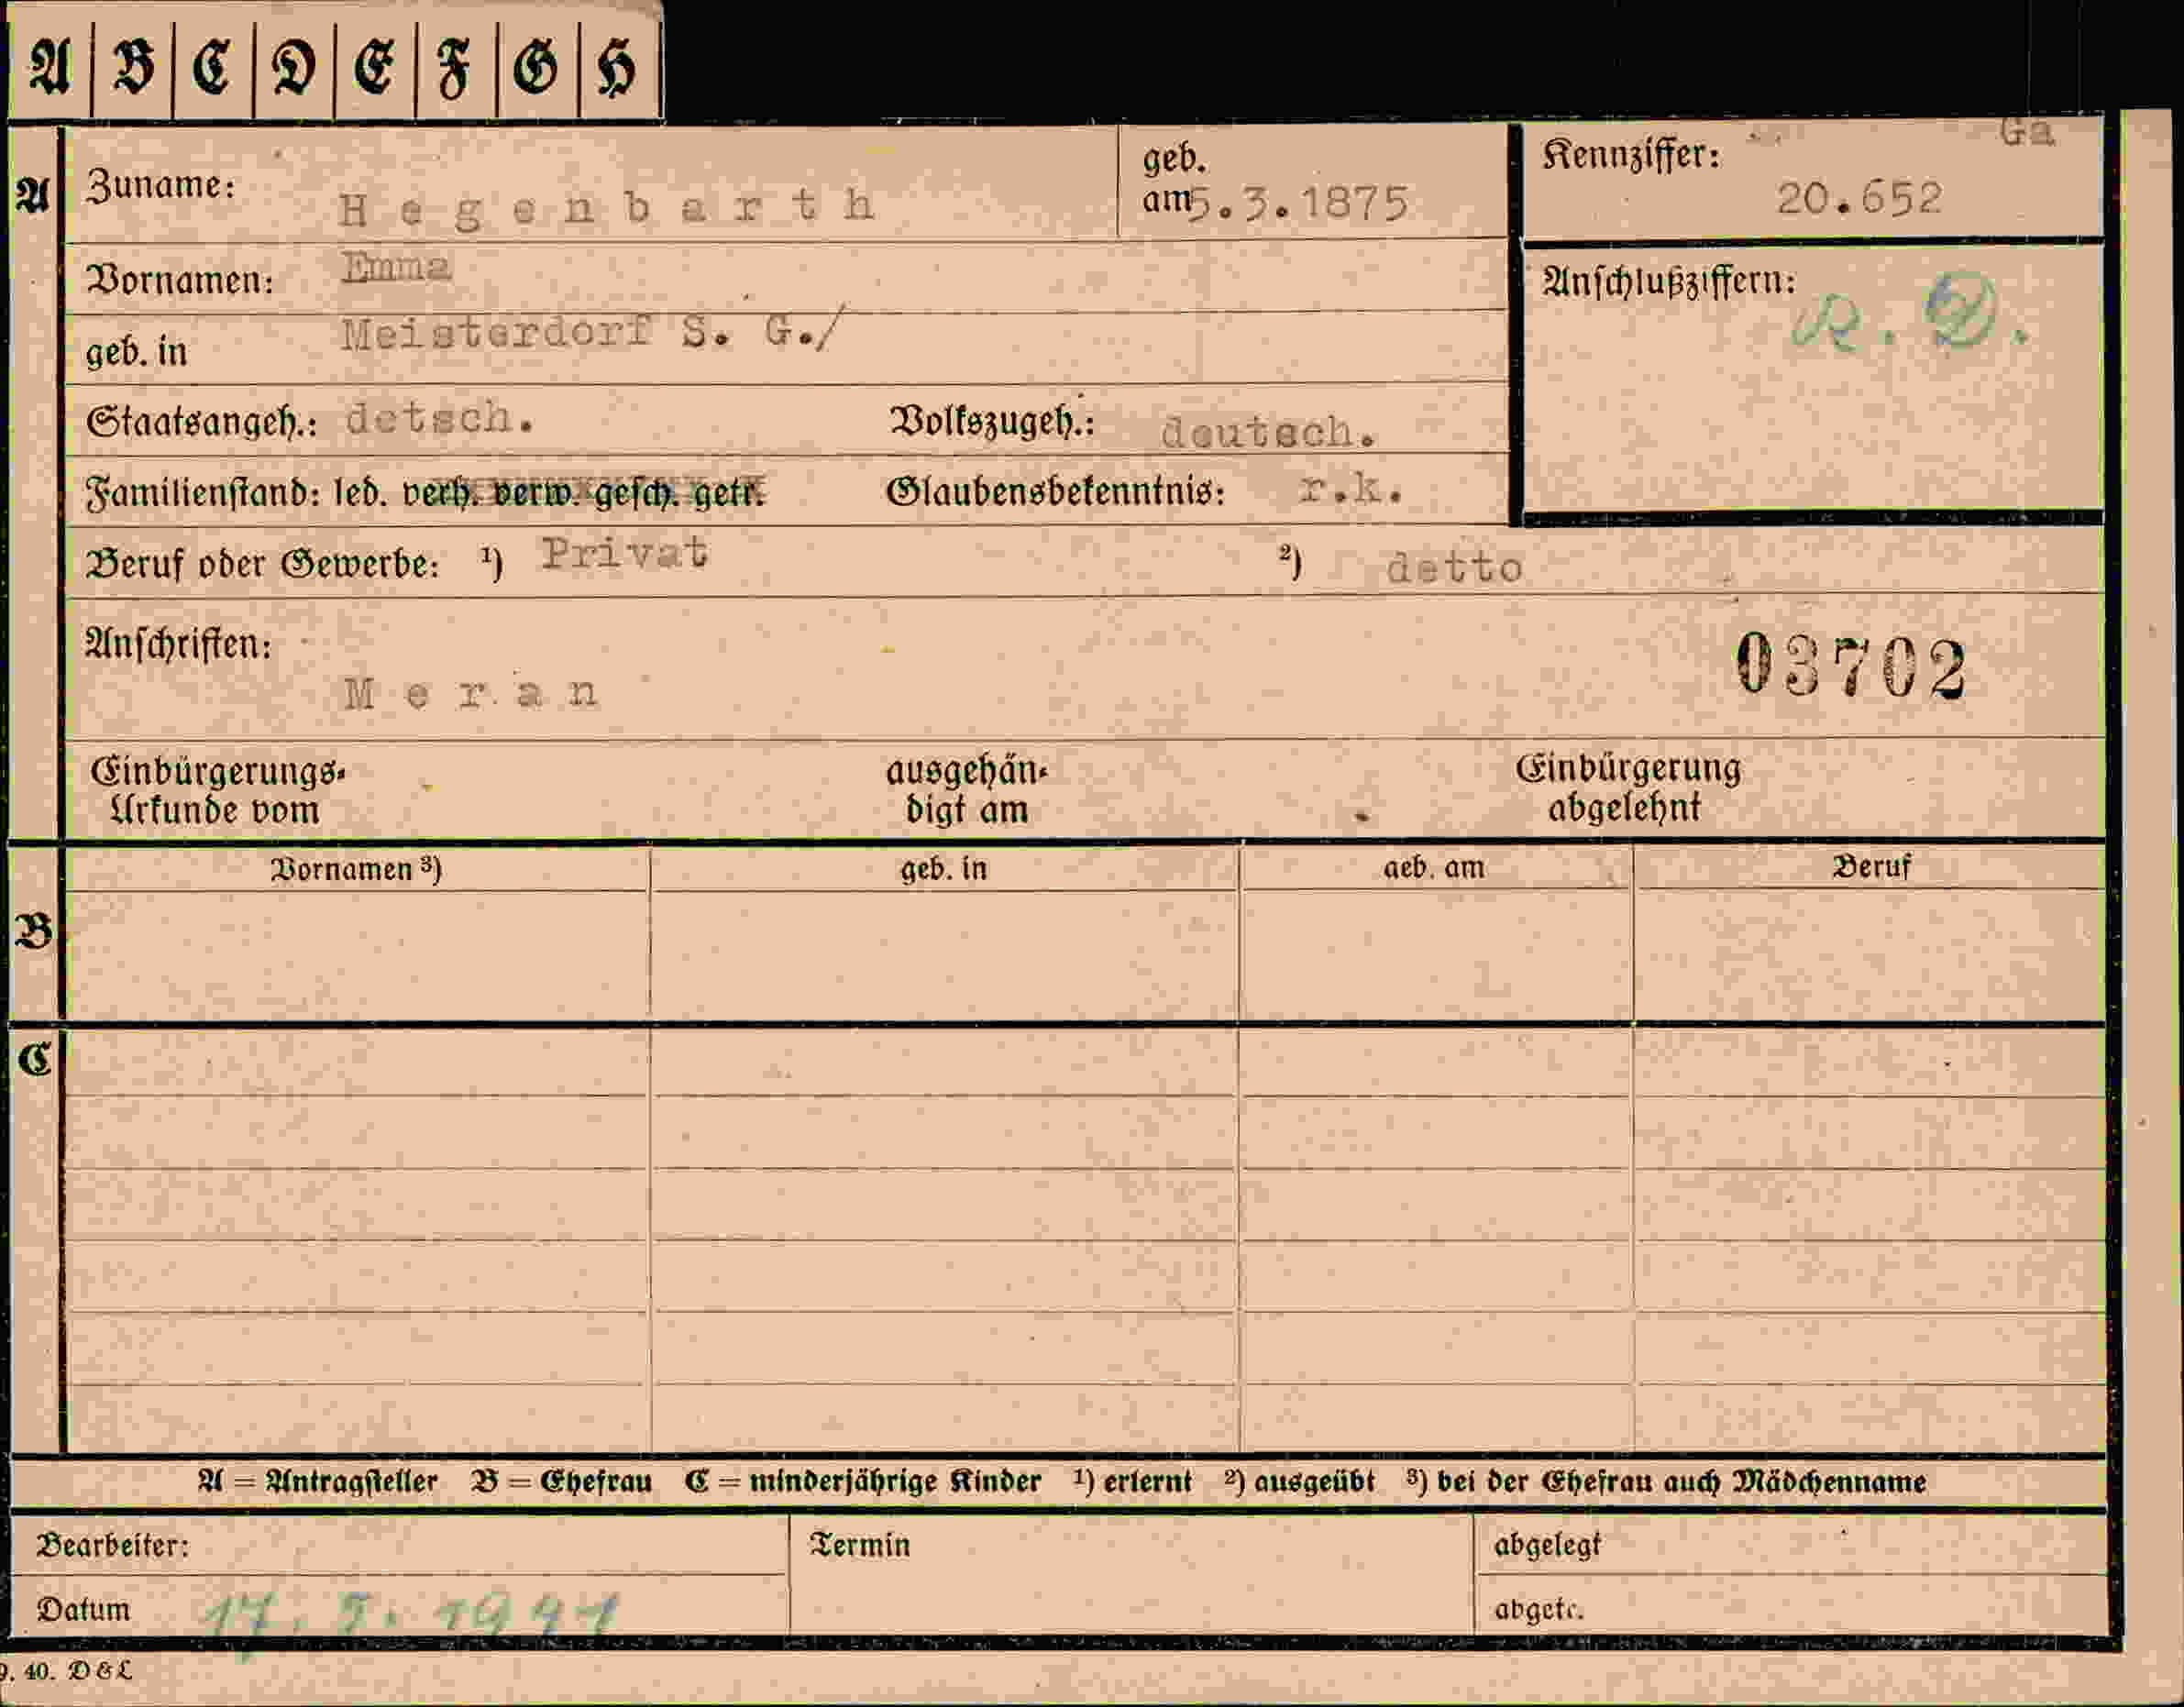 A B C D E F G H
Ga
A Zuname: Hegenbarth geb. am 5.3.1875 Kennziffer: 20.652
Vornamen: Emma Anschlußziffern: R. D.
geb. in Meisterdorf S. G./
Staatsangeh.: detsch. Volkszugeh.: deutsch.
Familienstand: led. verh. verw. gesch. getr. Glaubensbekenntnis: r.k.
Beruf oder Gewerbe: ¹) Privat ²) detto
Anschriften: 03702
Meran
Einbürgerungs- ausgehän- Einbürgerung
Urkunde vom digt am abgelehnt
Vornamen ³) geb. in geb. am Beruf
B
C
A = Antragsteller B = Ehefrau C = minderjährige Kinder ¹) erlernt ²) ausgeübt ³) bei der Ehefrau auch Mädchenname
Bearbeiter: Termin abgelegt
Datum 17. 5. 1941 abgetr.
9. 40. D & L